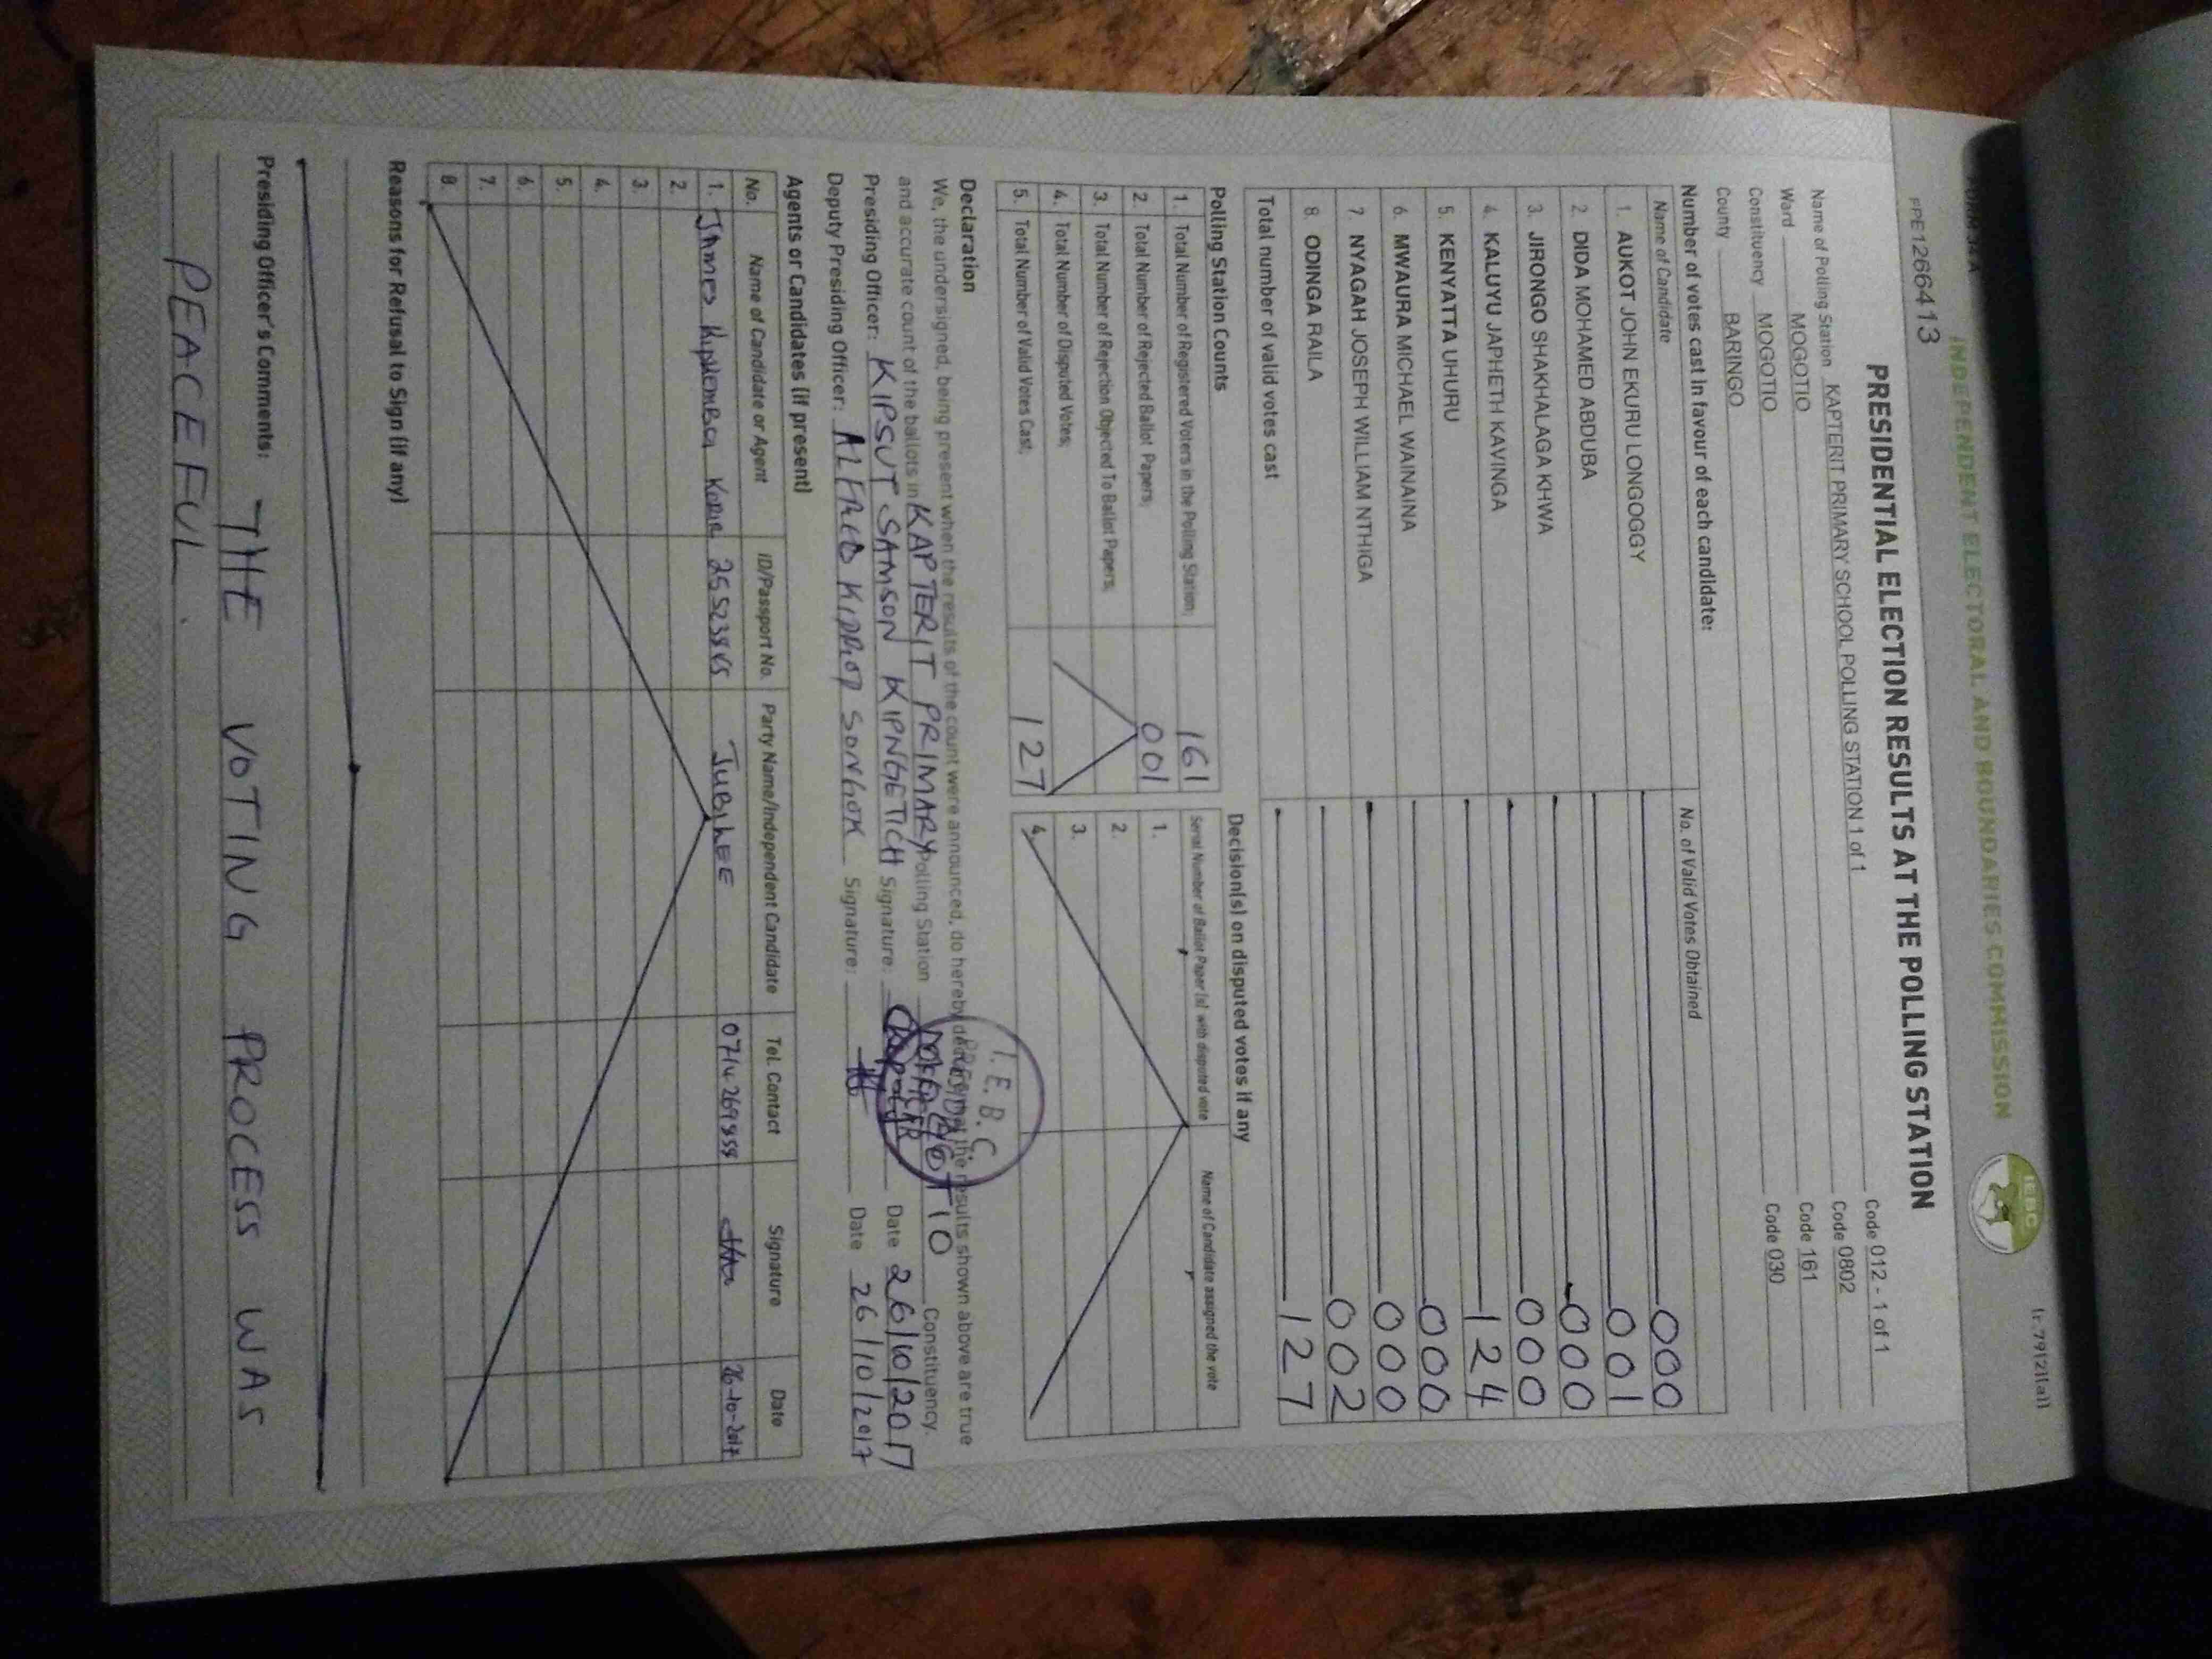 FORM 34 A
Ir 79(2)(a)
INDEPENDENT ELECTORAL AND BOUNDARIES COMMISSION
IEBC
PRESIDENTIAL ELECTION RESULTS AT THE POLLING STATION
PPE1266413
Name of Polling Station KAPTERIT PRIMARY SCHOOL POLLING STATION 1 of 1 Code 012 - 1 of 1
Ward MOGOTIO Code 0802
Constituency MOGOTIO Code 161
County BARINGO Code 030
Number of votes cast in favour of each candidate:
Name of Candidate No. of Valid Votes Obtained
1. AUKOT JOHN EKURU LONGOGGY 000
2. DIDA MOHAMED ABDUBA 001
3. JIRONGO SHAKHALAGA KHWA 000
4. KALUYU JAPHETH KAVINGA 000
5. KENYATTA UHURU 124
6. MWAURA MICHAEL WAINAINA 000
7. NYAGAH JOSEPH WILLIAM NTHIGA 000
8. ODINGA RAILA 002
Total number of valid votes cast 127
Polling Station Counts
1. Total Number of Registered Voters in the Polling Station; 161
2. Total Number of Rejected Ballot Papers; 001
3. Total Number of Rejection Objected To Ballot Papers;
4. Total Number of Disputed Votes;
5. Total Number of Valid Votes Cast; 127
Decision(s) on disputed votes if any
Serial Number of Ballot Paper(s) with disputed vote Name of Candidate assigned the vote
1.
2.
3.
4.
Declaration
We, the undersigned, being present when the results of the count were announced, do hereby declare that the results shown above are true
and accurate count of the ballots in KAPTERIT PRIMARY Polling Station MOGOTIO Constituency.
Presiding Officer: KIPSUT SAMSON KIPNGETICH Signature: Date 26/10/2017
Deputy Presiding Officer: ALFRED KIPROP SONGOK Signature: Date 26/10/2017
I.E.B.C
PRESIDING
OFFICER
Agents or Candidates (if present)
No. Name of Candidate or Agent ID/Passport No. Party Name/Independent Candidate Tel. Contact Signature Date
1. James Jubilee 26-10-2017
2.
3.
4.
5.
6.
7.
8.
Reasons for Refusal to Sign (if any)
Presiding Officer's Comments: THE VOTING PROCESS WAS
PEACEFUL.